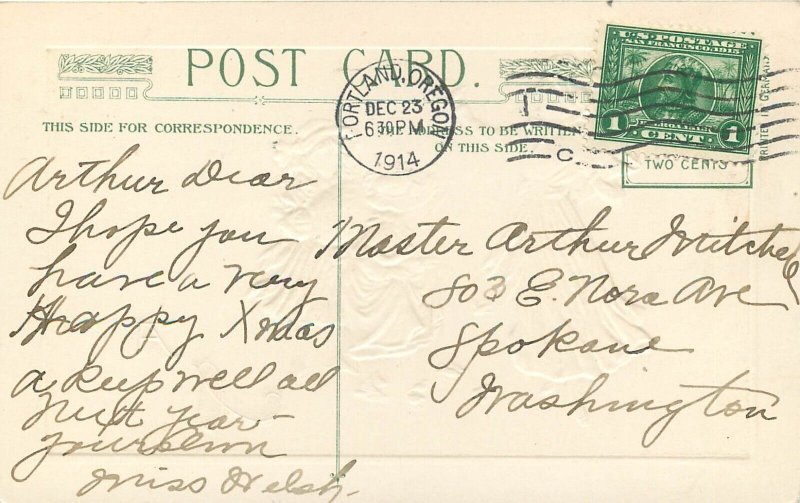 POST CARD.
PORTLAND, OREGON
DEC 23
6 30 PM
1914
U.S. POSTAGE
SAN FRANCISCO 1915
1 CENT 1
PRINTED IN GERMANY
THIS SIDE FOR CORRESPONDENCE.
ADDRESS TO BE WRITTEN
ON THIS SIDE.
TWO CENTS
C
Arthur Dear
I hope you
have a very
Happy Xmas
a keep well all
next year-
yours
Miss Welsh.
Master Arthur Mitchell
803 E. Nora Ave
Spokane
Washington